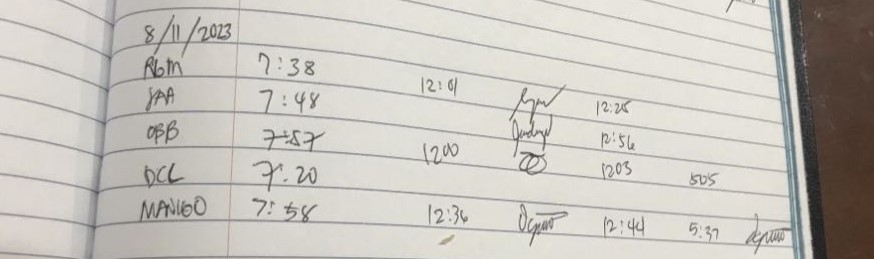 8/11/2023
RBM 7:38 12:01 12:25
JAA 7:48 12:56
OBB 7:57 1200 1203 505
DCL 7:20
MANGO 7:58 12:36 12:44 5:37